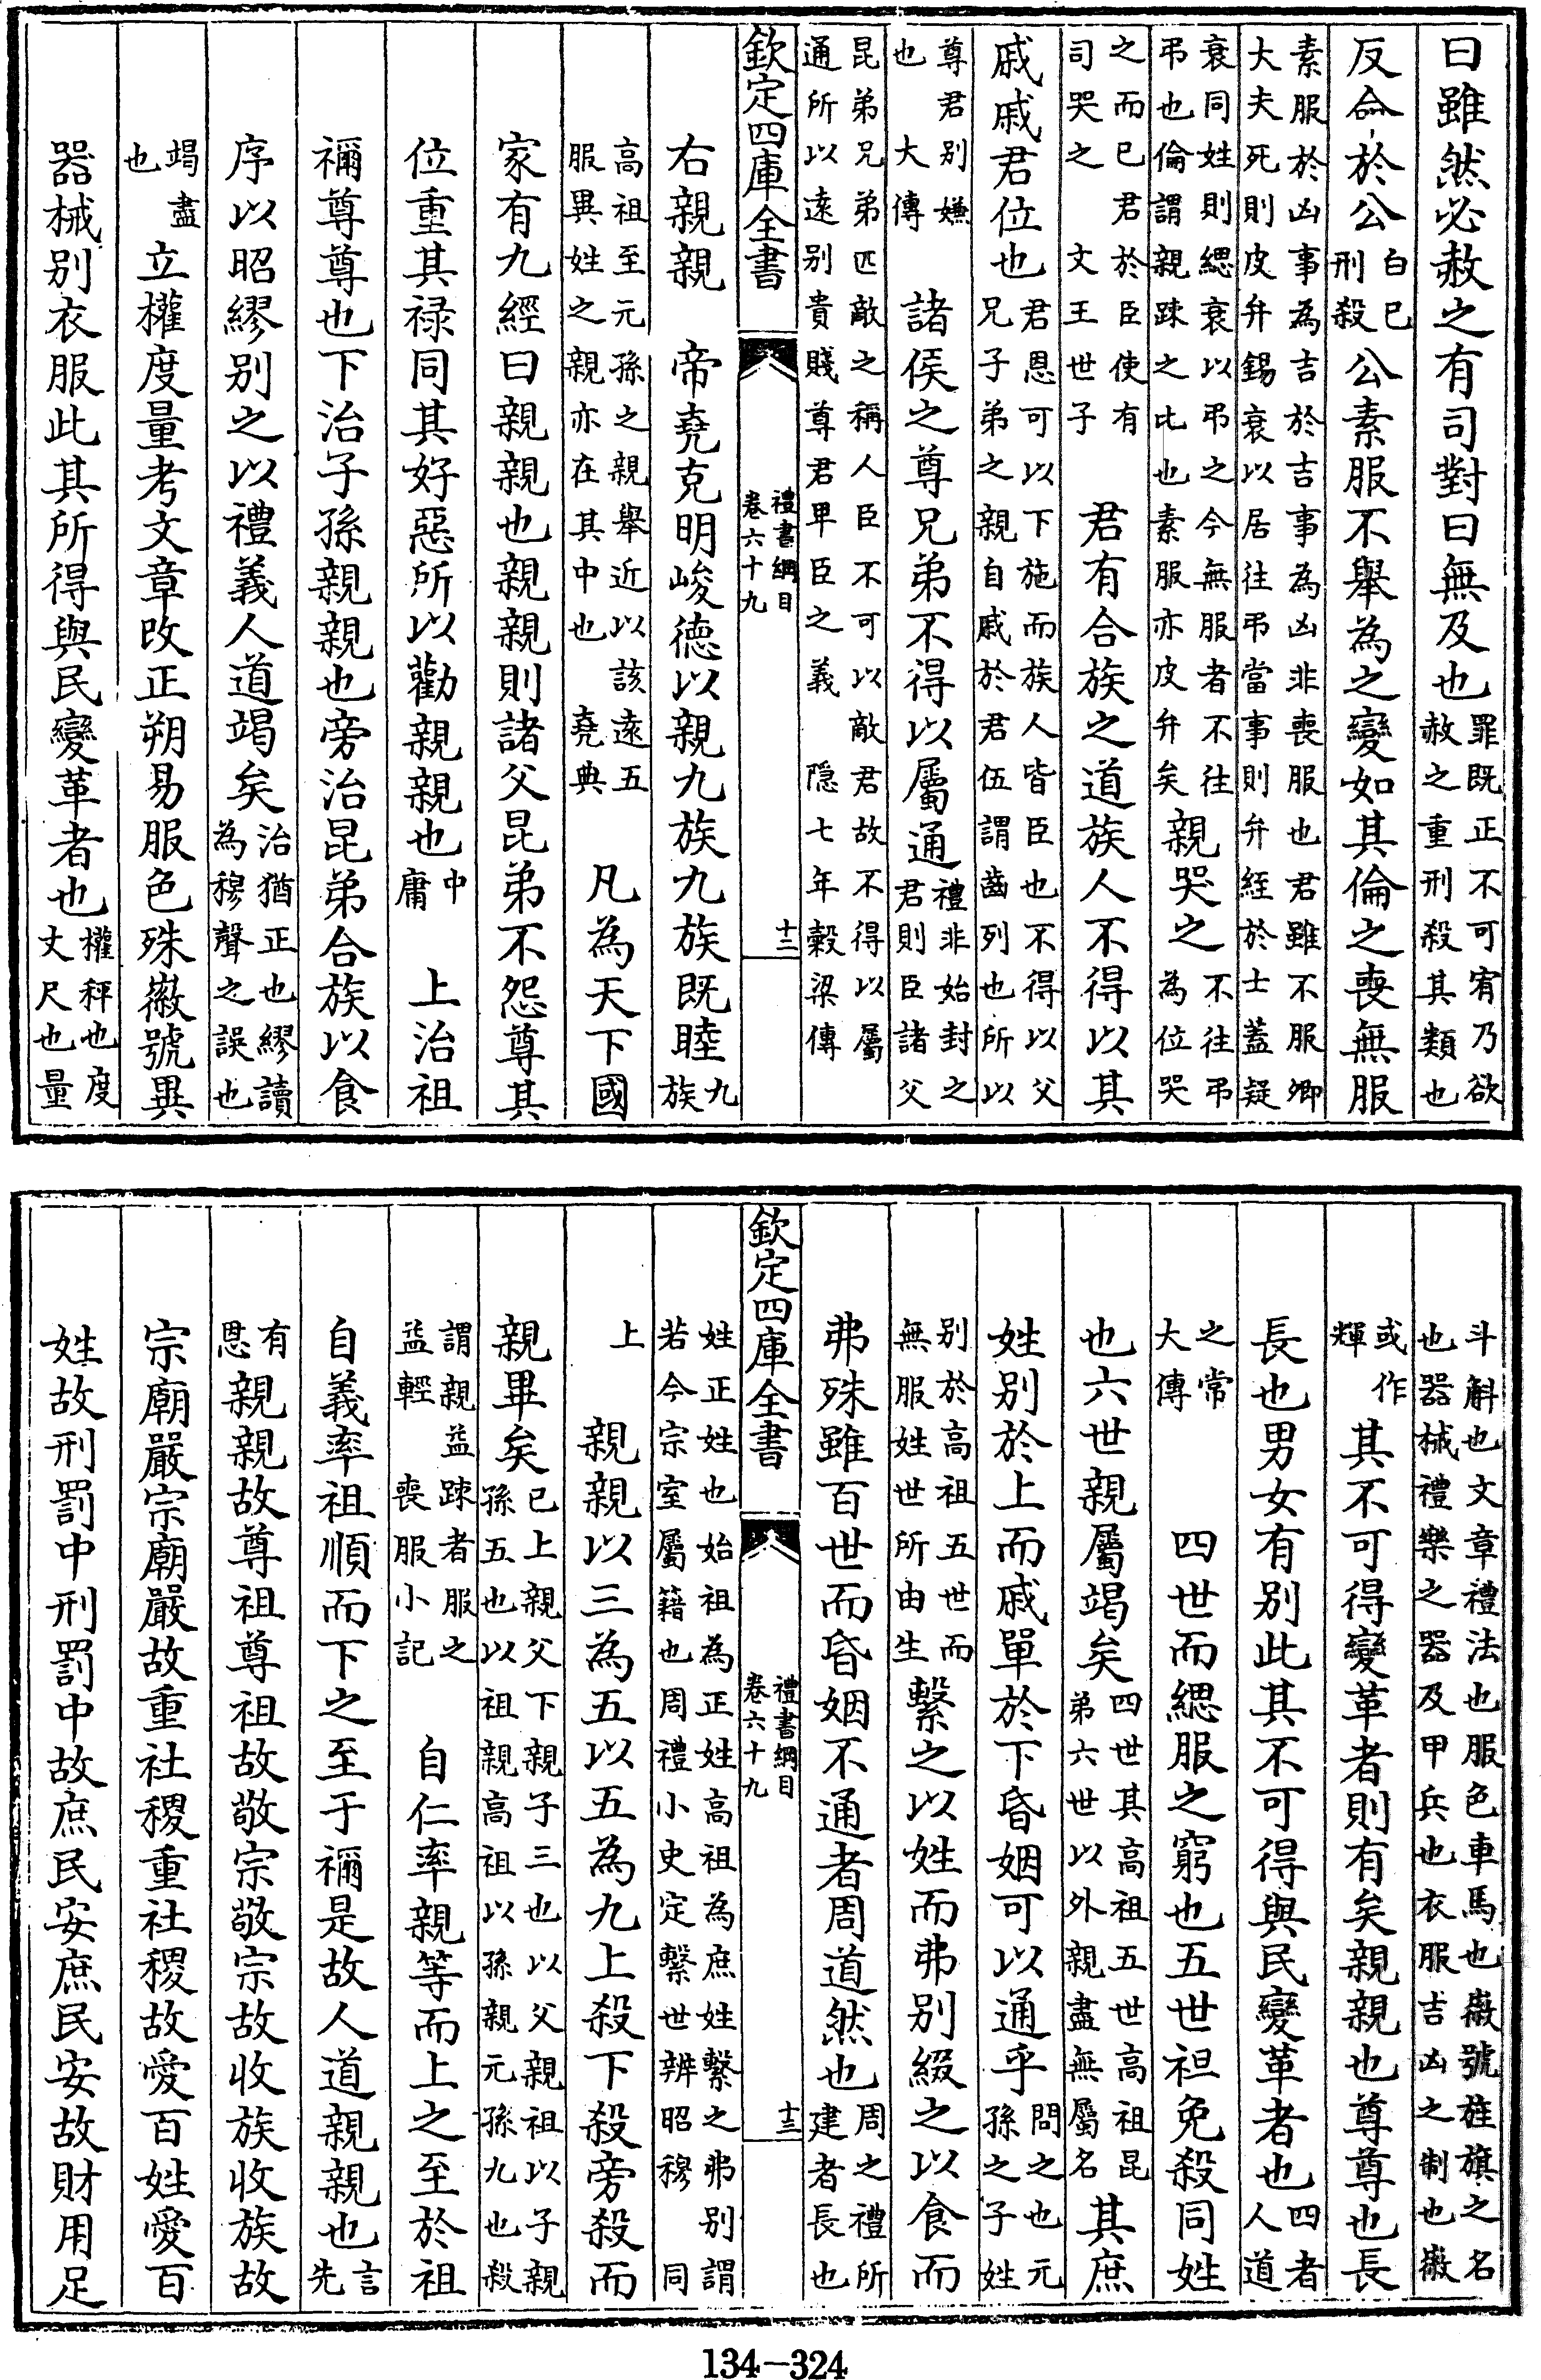 曰雖然必赦之有司對曰無及也罪既正不可宥乃欲赦之重刑殺其類也
反命於公白已刑殺公素服不舉為之變如其倫之喪無服
素服於凶事為吉於吉事為凶非喪服也君雖不服卿大夫死則皮弁錫衰以居往弔當事則弁絰於士蓋疑
衰同姓則緦衰以弔之今無服者不往弔也倫謂親踈之比也素服亦皮弁矣親哭之不往弔為位哭
之而已君於臣使有司哭之 文王世子 君有合族之道族人不得以其
戚戚君位也君恩可以下施而族人皆臣也不得以父兄子弟之親自戚於君伍謂齒列也所以
尊君别嫌也 大傳 諸侯之尊兄弟不得以屬通禮非始封之君則臣諸父
昆弟兄弟匹敵之稱人臣不可以敵君故不得以屬通所以逺别貴賤尊君卑臣之義 隠七年榖梁傳
欽定四庫全書 禮書綱目 卷六十九 十二
右親親 帝堯克明峻德以親九族九族既睦九族
高祖至元孫之親舉近以該逺五服異姓之親亦在其中也 堯典 凡為天下國
家有九經曰親親也親親則諸父昆弟不怨尊其
位重其禄同其好惡所以勸親親也中庸 上治祖
禰尊尊也下治子孫親親也旁治昆弟合族以食
序以昭繆别之以禮義人道竭矣治猶正也繆讀為穆聲之誤也
竭盡也立權度量考文章改正朔易服色殊徽號異
器械别衣服此其所得與民變革者也權秤也度丈尺也量
斗斛也文章禮法也服色車馬也徽號旌旗之名也器械禮樂之器及甲兵也衣服吉凶之制也徽
或作輝其不可得變革者則有矣親親也尊尊也長
長也男女有别此其不可得與民變革者也四者人道
之常 大傳 四世而緦服之窮也五世袒免殺同姓
也六世親屬竭矣四世其高祖五世高祖昆弟六世以外親盡無屬名其庶
姓别於上而戚單於下昏姻可以通乎問之也元孫之子姓
别於高祖五世而無服姓世所由生繫之以姓而弗别綴之以食而
弗殊雖百世而昏姻不通者周道然也周之禮所建者長也
欽定四庫全書 禮書綱目 卷六十九 十三
姓正姓也始祖為正姓高祖為庶姓繫之弗别謂若今宗室屬籍也周禮小史定繫世辨昭穆 同
上 親親以三為五以五為九上殺下殺旁殺而
親畢矣已上親父下親子三也以父親祖以子親孫五也以祖親高祖以孫親元孫九也殺
謂親益踈者服之益輕 喪服小記 自仁率親等而上之至於祖
自義率祖順而下之至于禰是故人道親親也言先
有恩親親故尊祖尊祖故敬宗敬宗故收族收族故
宗廟嚴宗廟嚴故重社稷重社稷故愛百姓愛百
姓故刑罰中刑罰中故庶民安庶民安故財用足
134-324